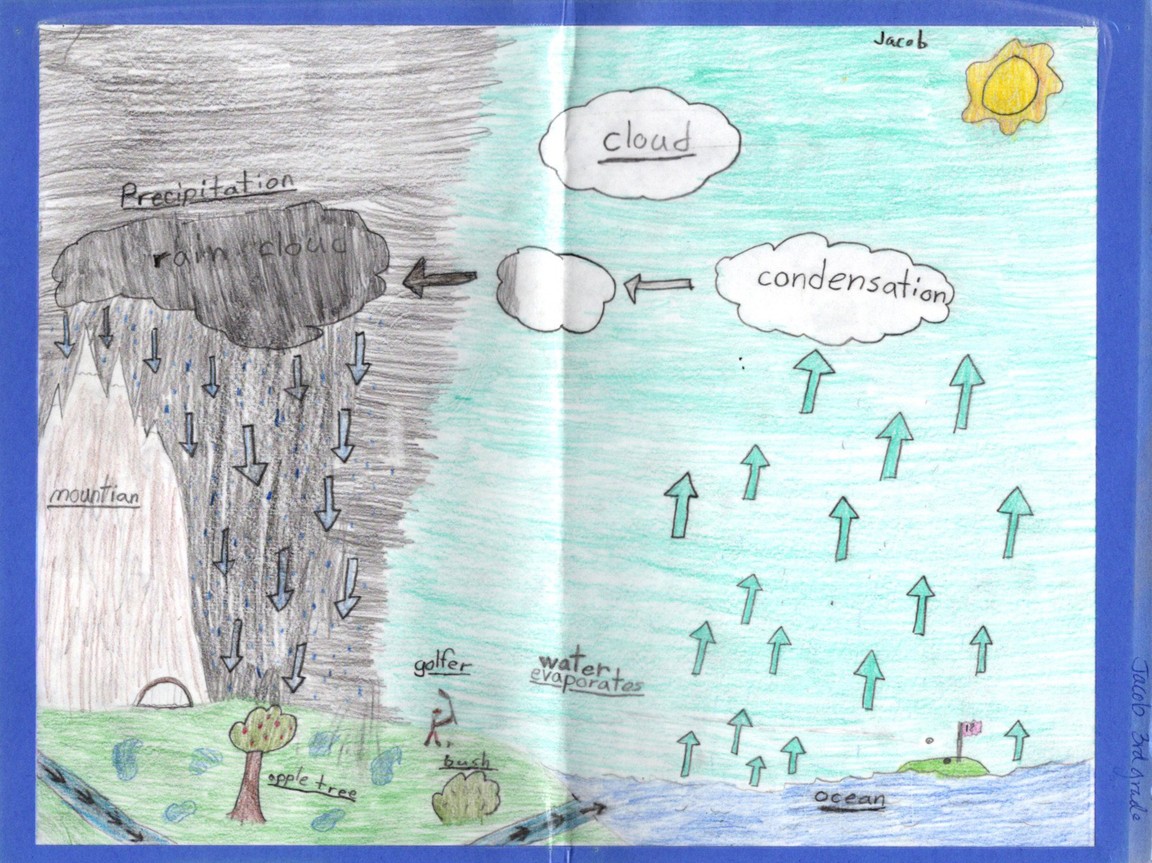 Jacob
cloud
Precipitation
rain cloud
condensation
mountian
golfer
water
evaporates
bush
apple tree
ocean
Jacob 3rd grade